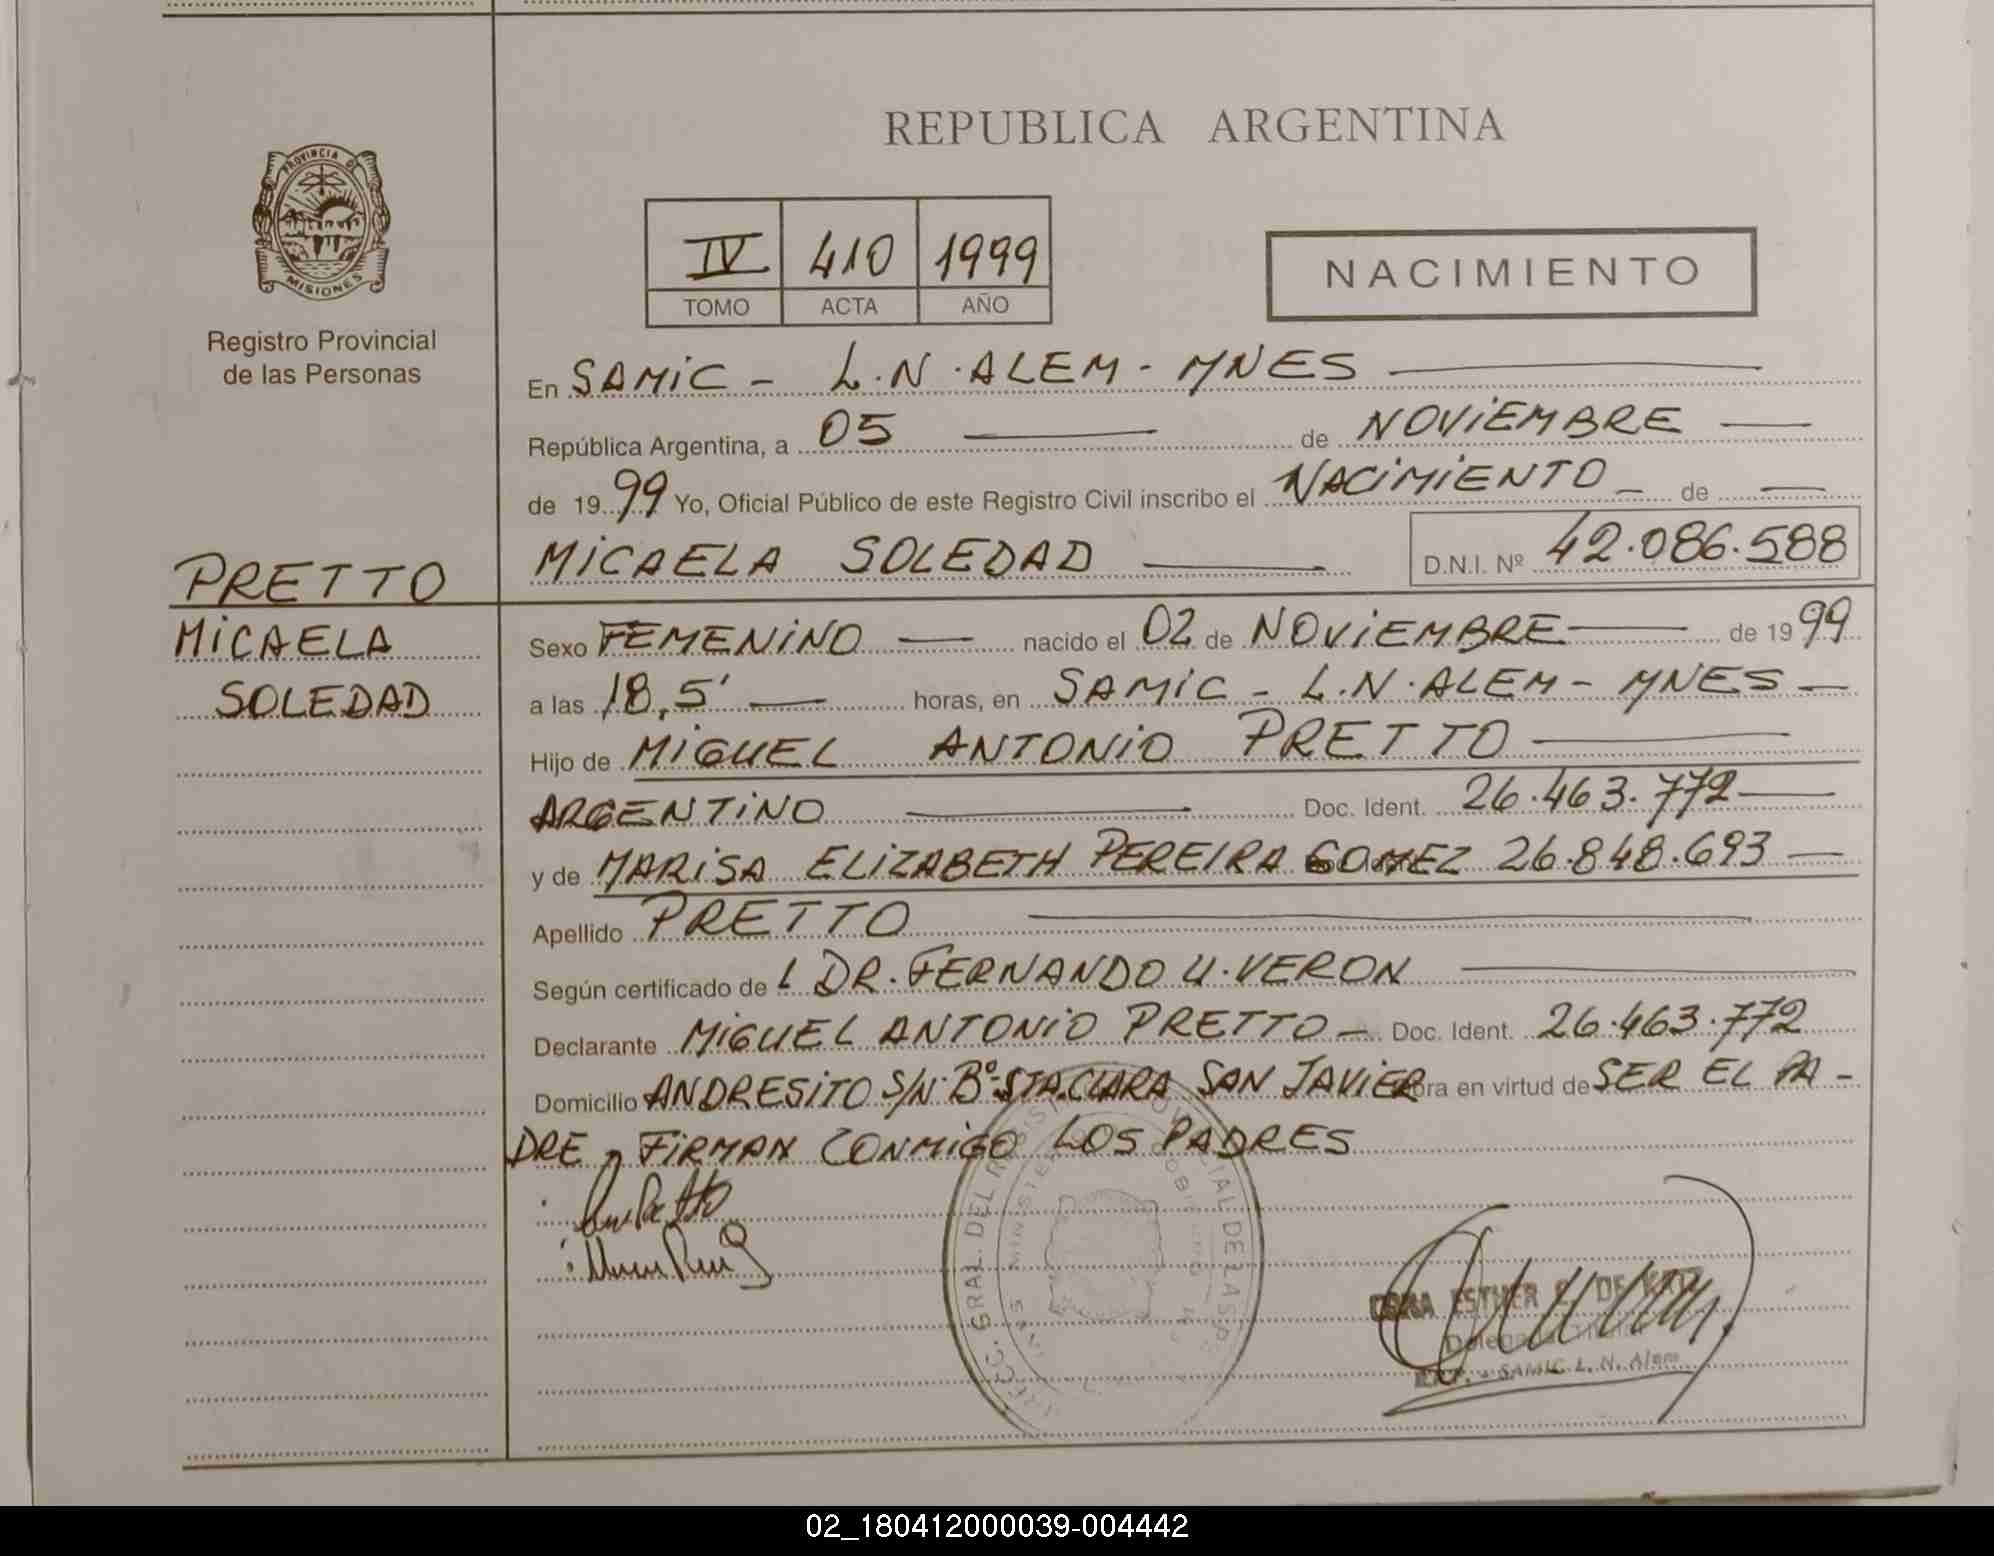 REPUBLICA ARGENTINA
PROVINCIA DE
MISIONES
Registro Provincial
de las Personas
IV 410 1999
TOMO ACTA AÑO
NACIMIENTO
En SAMIC - L.N. ALEM - MNES
República Argentina, a 05 de NOVIEMBRE
de 1999 Yo, Oficial Público de este Registro Civil inscribo el NACIMIENTO de
MICAELA SOLEDAD D.N.I. Nº 42.086.588
PRETTO
MICAELA
SOLEDAD
Sexo FEMENINO nacido el 02 de NOVIEMBRE de 1999
a las 18,5' horas, en SAMIC - L.N. ALEM - MNES
Hijo de MIGUEL ANTONIO PRETTO
ARGENTINO Doc. Ident. 26.463.772
y de MARISA ELIZABETH PEREIRA GOMEZ 26.848.693
Apellido PRETTO
Según certificado de L DR. FERNANDO U. VERON
Declarante MIGUEL ANTONIO PRETTO - Doc. Ident. 26.463.772
Domicilio ANDRESITO S/N. Bº. STA. CLARA SAN JAVIER obra en virtud de SER EL PA-
DRE, FIRMAN CONMIGO LOS PADRES
ESTHER DE
SAMIC L. N. Alem
02_180412000039-004442